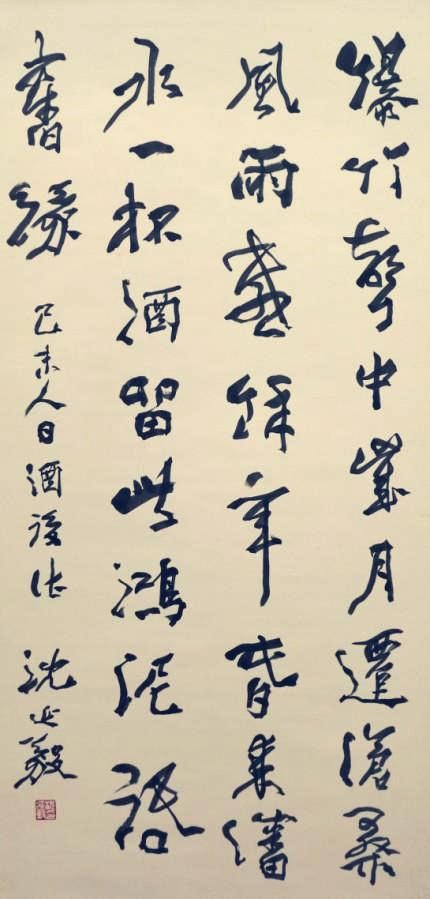 爆竹聲中歲月遷滄桑
風雨感餘年昔來瀋
水一杯酒留此鴻泥話
舊緣
己未人日酒後作 沈延毅